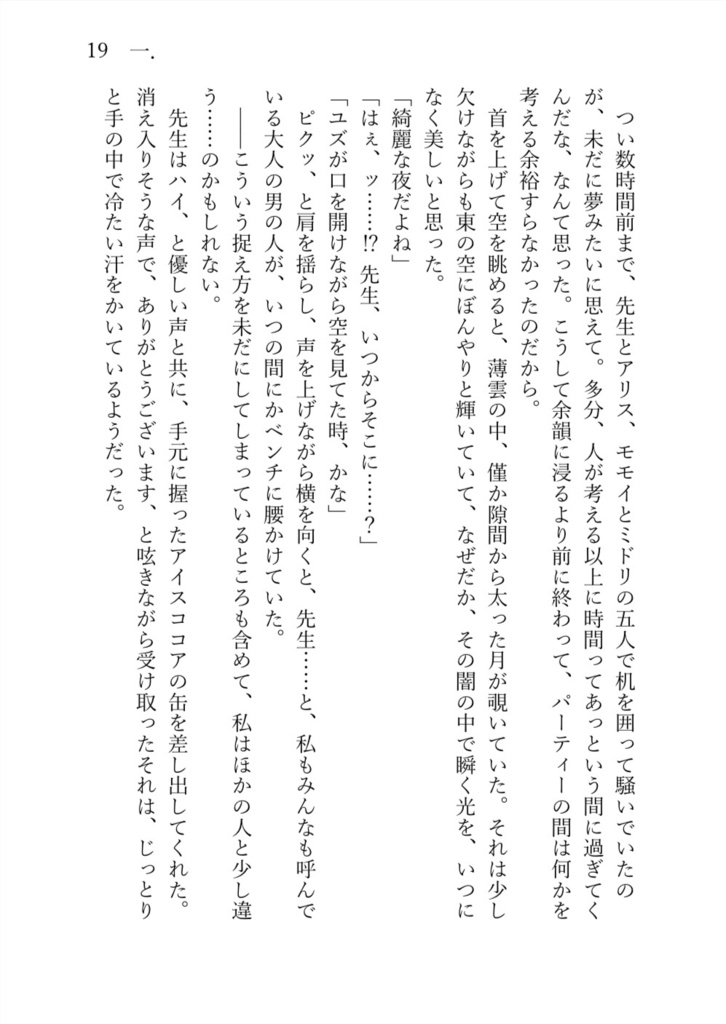 19　一．
　つい数時間前まで、先生とアリス、モモイとミドリの五人で机を囲って騒いでいたの
が、未だに夢みたいに思えて。多分、人が考える以上に時間ってあっという間に過ぎてく
んだな、なんて思った。こうして余韻に浸るより前に終わって、パーティーの間は何かを
考える余裕すらなかったのだから。
　首を上げて空を眺めると、薄雲の中、僅か隙間から太った月が覗いていた。それは少し
欠けながらも東の空にぼんやりと輝いていて、なぜだか、その闇の中で瞬く光を、いつに
なく美しいと思った。
「綺麗な夜だよね」
「はぇ、ッ……!? 先生、いつからそこに……？」
「ユズが口を開けながら空を見てた時、かな」
　ピクッ、と肩を揺らし、声を上げながら横を向くと、先生……と、私もみんなも呼んで
いる大人の男の人が、いつの間にかベンチに腰かけていた。
　――こういう捉え方を未だにしてしまっているところも含めて、私はほかの人と少し違
う……のかもしれない。
　先生はハイ、と優しい声と共に、手元に握ったアイスココアの缶を差し出してくれた。
消え入りそうな声で、ありがとうございます、と呟きながら受け取ったそれは、じっとり
と手の中で冷たい汗をかいているようだった。